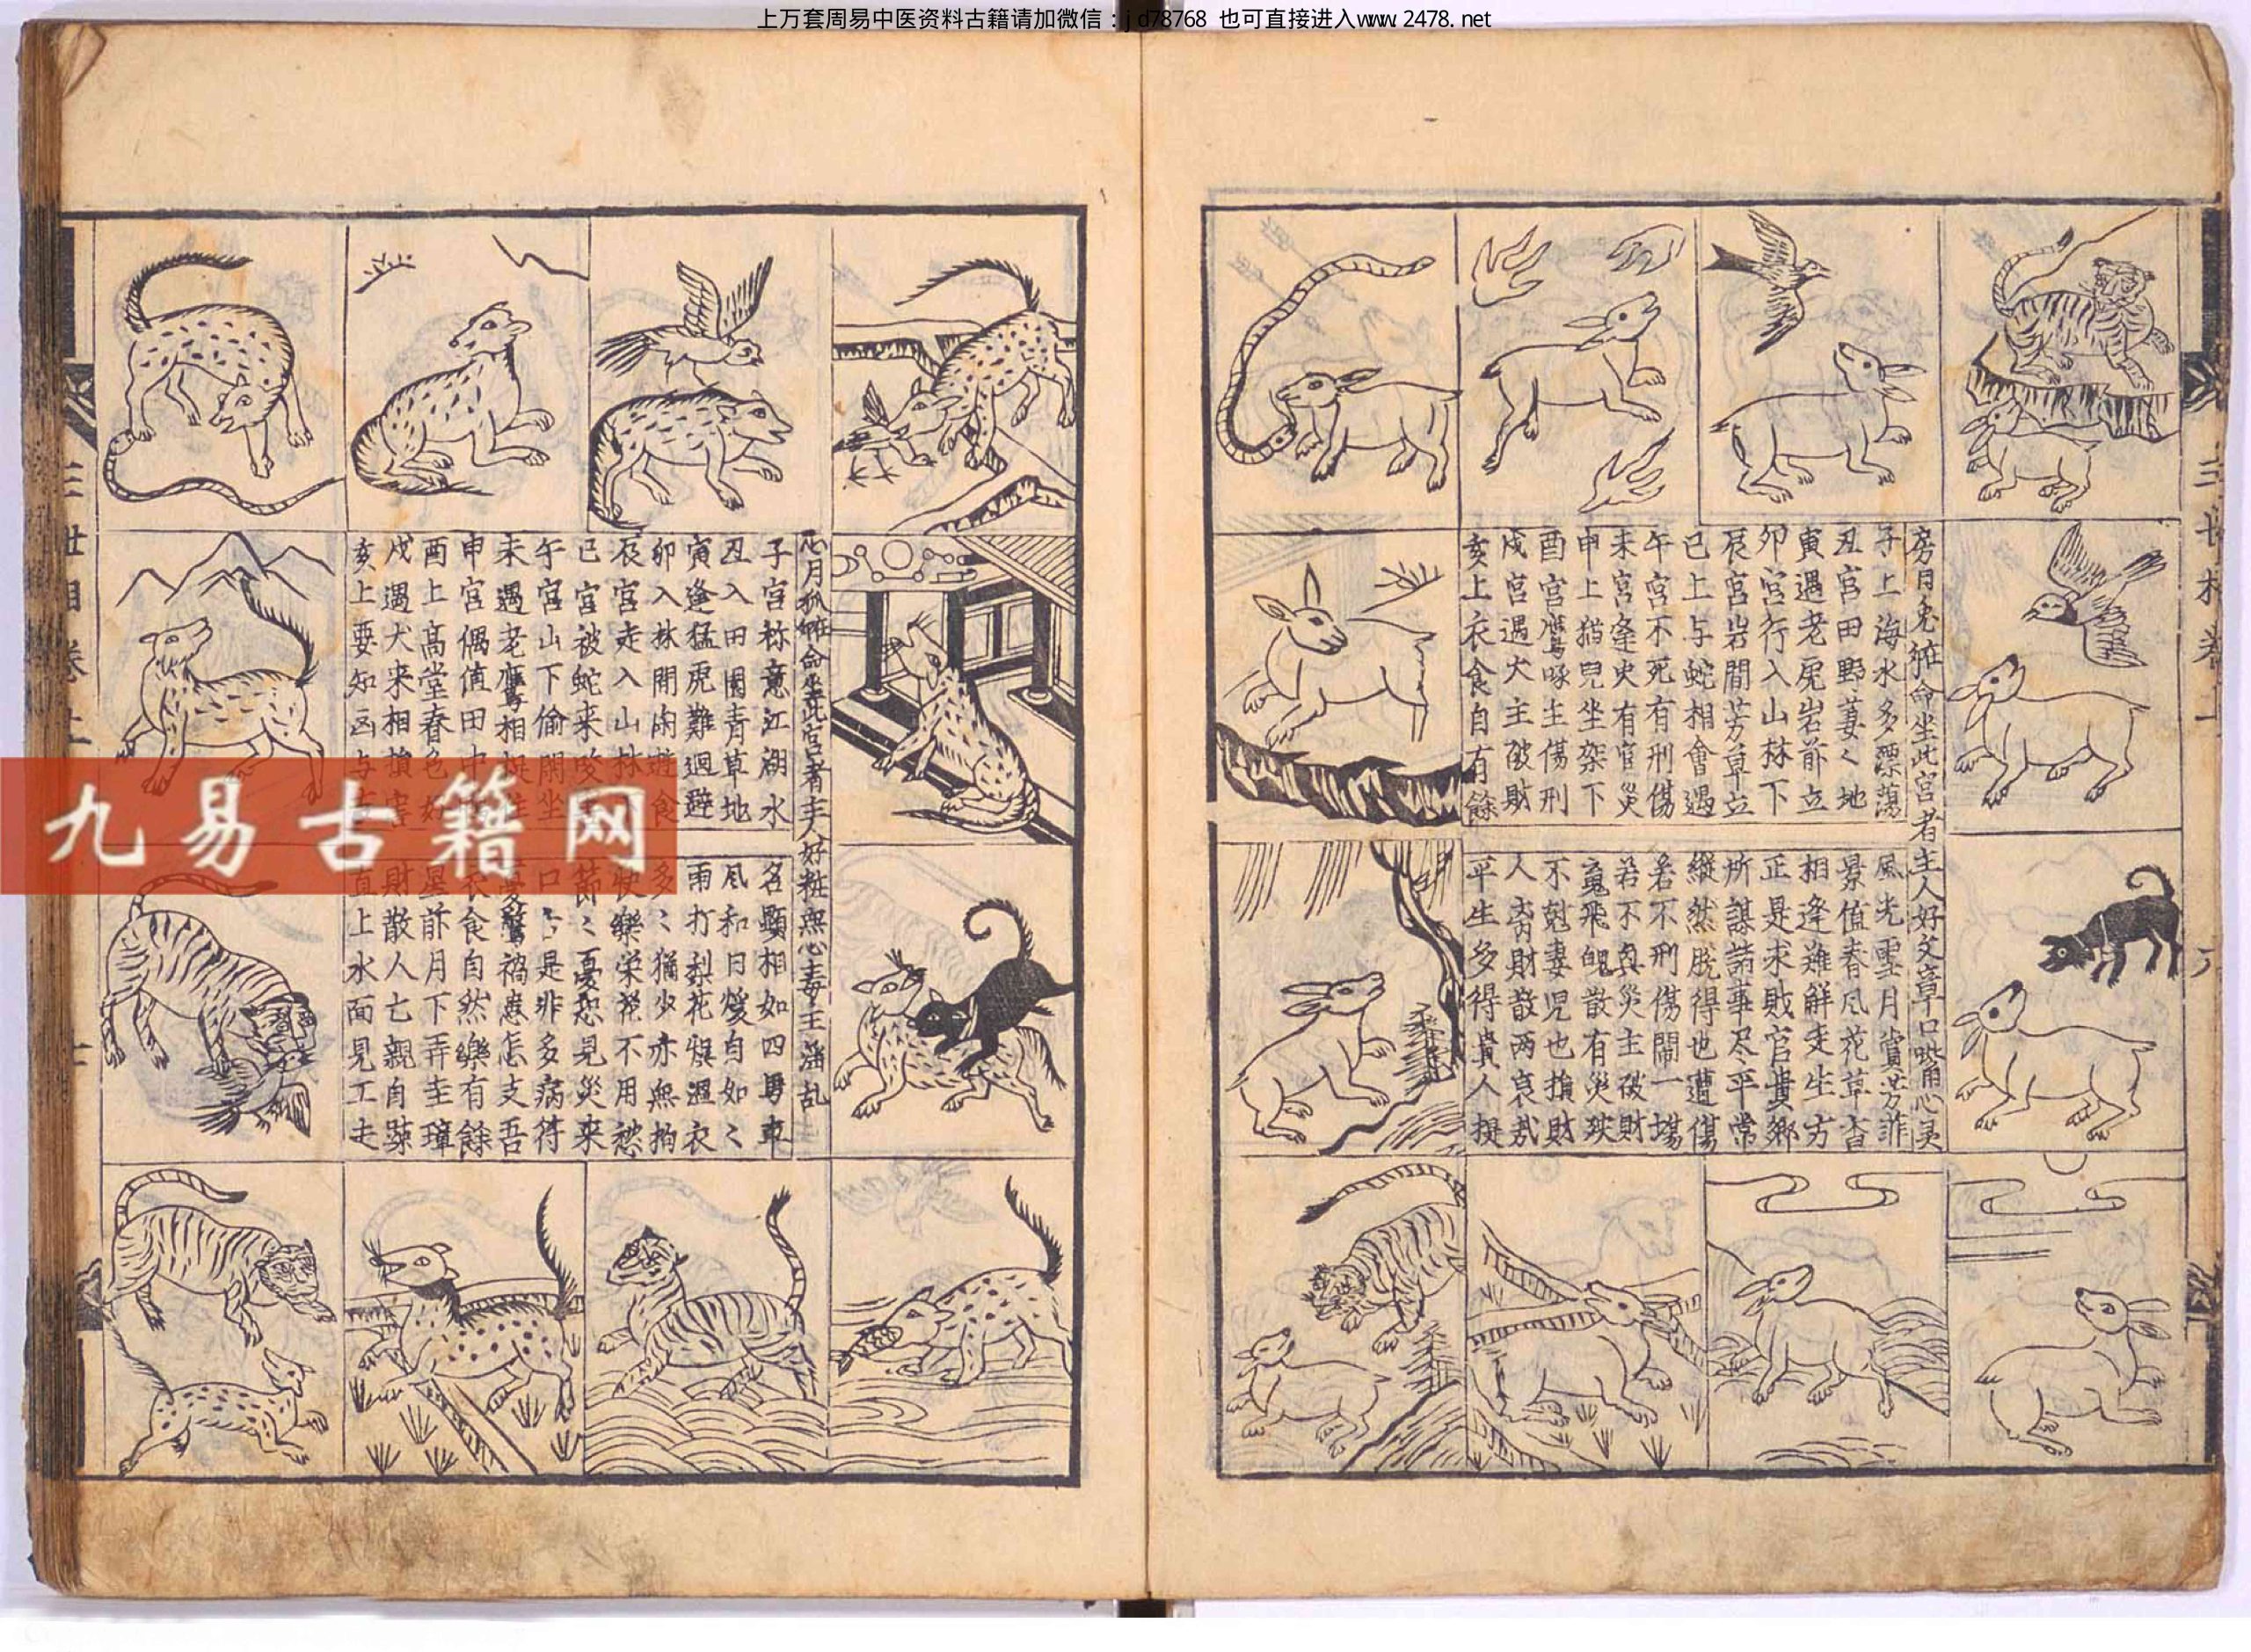 上万套周易中医资料古籍请加微信：jd78768 也可直接进入www.2478.net
房日兔 命坐此宫者主人好文章口 心灵
子上海水多漂蕩
丑宫田野萋〻地
寅遇老虎岩前立
卯宫行入山林下
辰宫岩間芳草立
巳上与蛇相會遇
午宫不死有刑傷
未宫逢火有官災
申上猫兒坐架下
酉宫鷹啄主傷刑
戌宫遇犬主破財
亥上衣食自有餘
風光雪月賞芳菲
景值春风花草香
相逢難解受生方
正是求財官貴鄉
所謀諸事尽平常
縱然脱得也遭傷
若不刑傷鬧一場
若不 災主破財
魂飛魄散有災殃
不尅妻児也損財
人离財散两哀哉
平生多得貴人提
心月狐 命坐此宫者主人好粧無心毒主淫乱
子宫称意江湖水
丑入田園青草地
寅逢猛虎難迴避
卯入林間闲遊食
辰宫走入山林
巳宫被蛇来咬
午宫山下偷閑坐
未遇老鷹相
申宫偶值田中
酉上高堂春色好
戌遇犬来相損害
亥上要知凶与吉
名顯相如四馬車
风和日煖自如〻
雨打梨花惧湿衣
多〻猶少亦無拘
快樂栄花不用愁
節〻憂愁見災来
口舌是非多病符
憂驚禍患怎支吾
衣食自然樂有餘
星前月下弄圭璋
財散人亡親自踈
直上水面見工走
三世相卷上
三世相卷上
六
七
九易古籍网